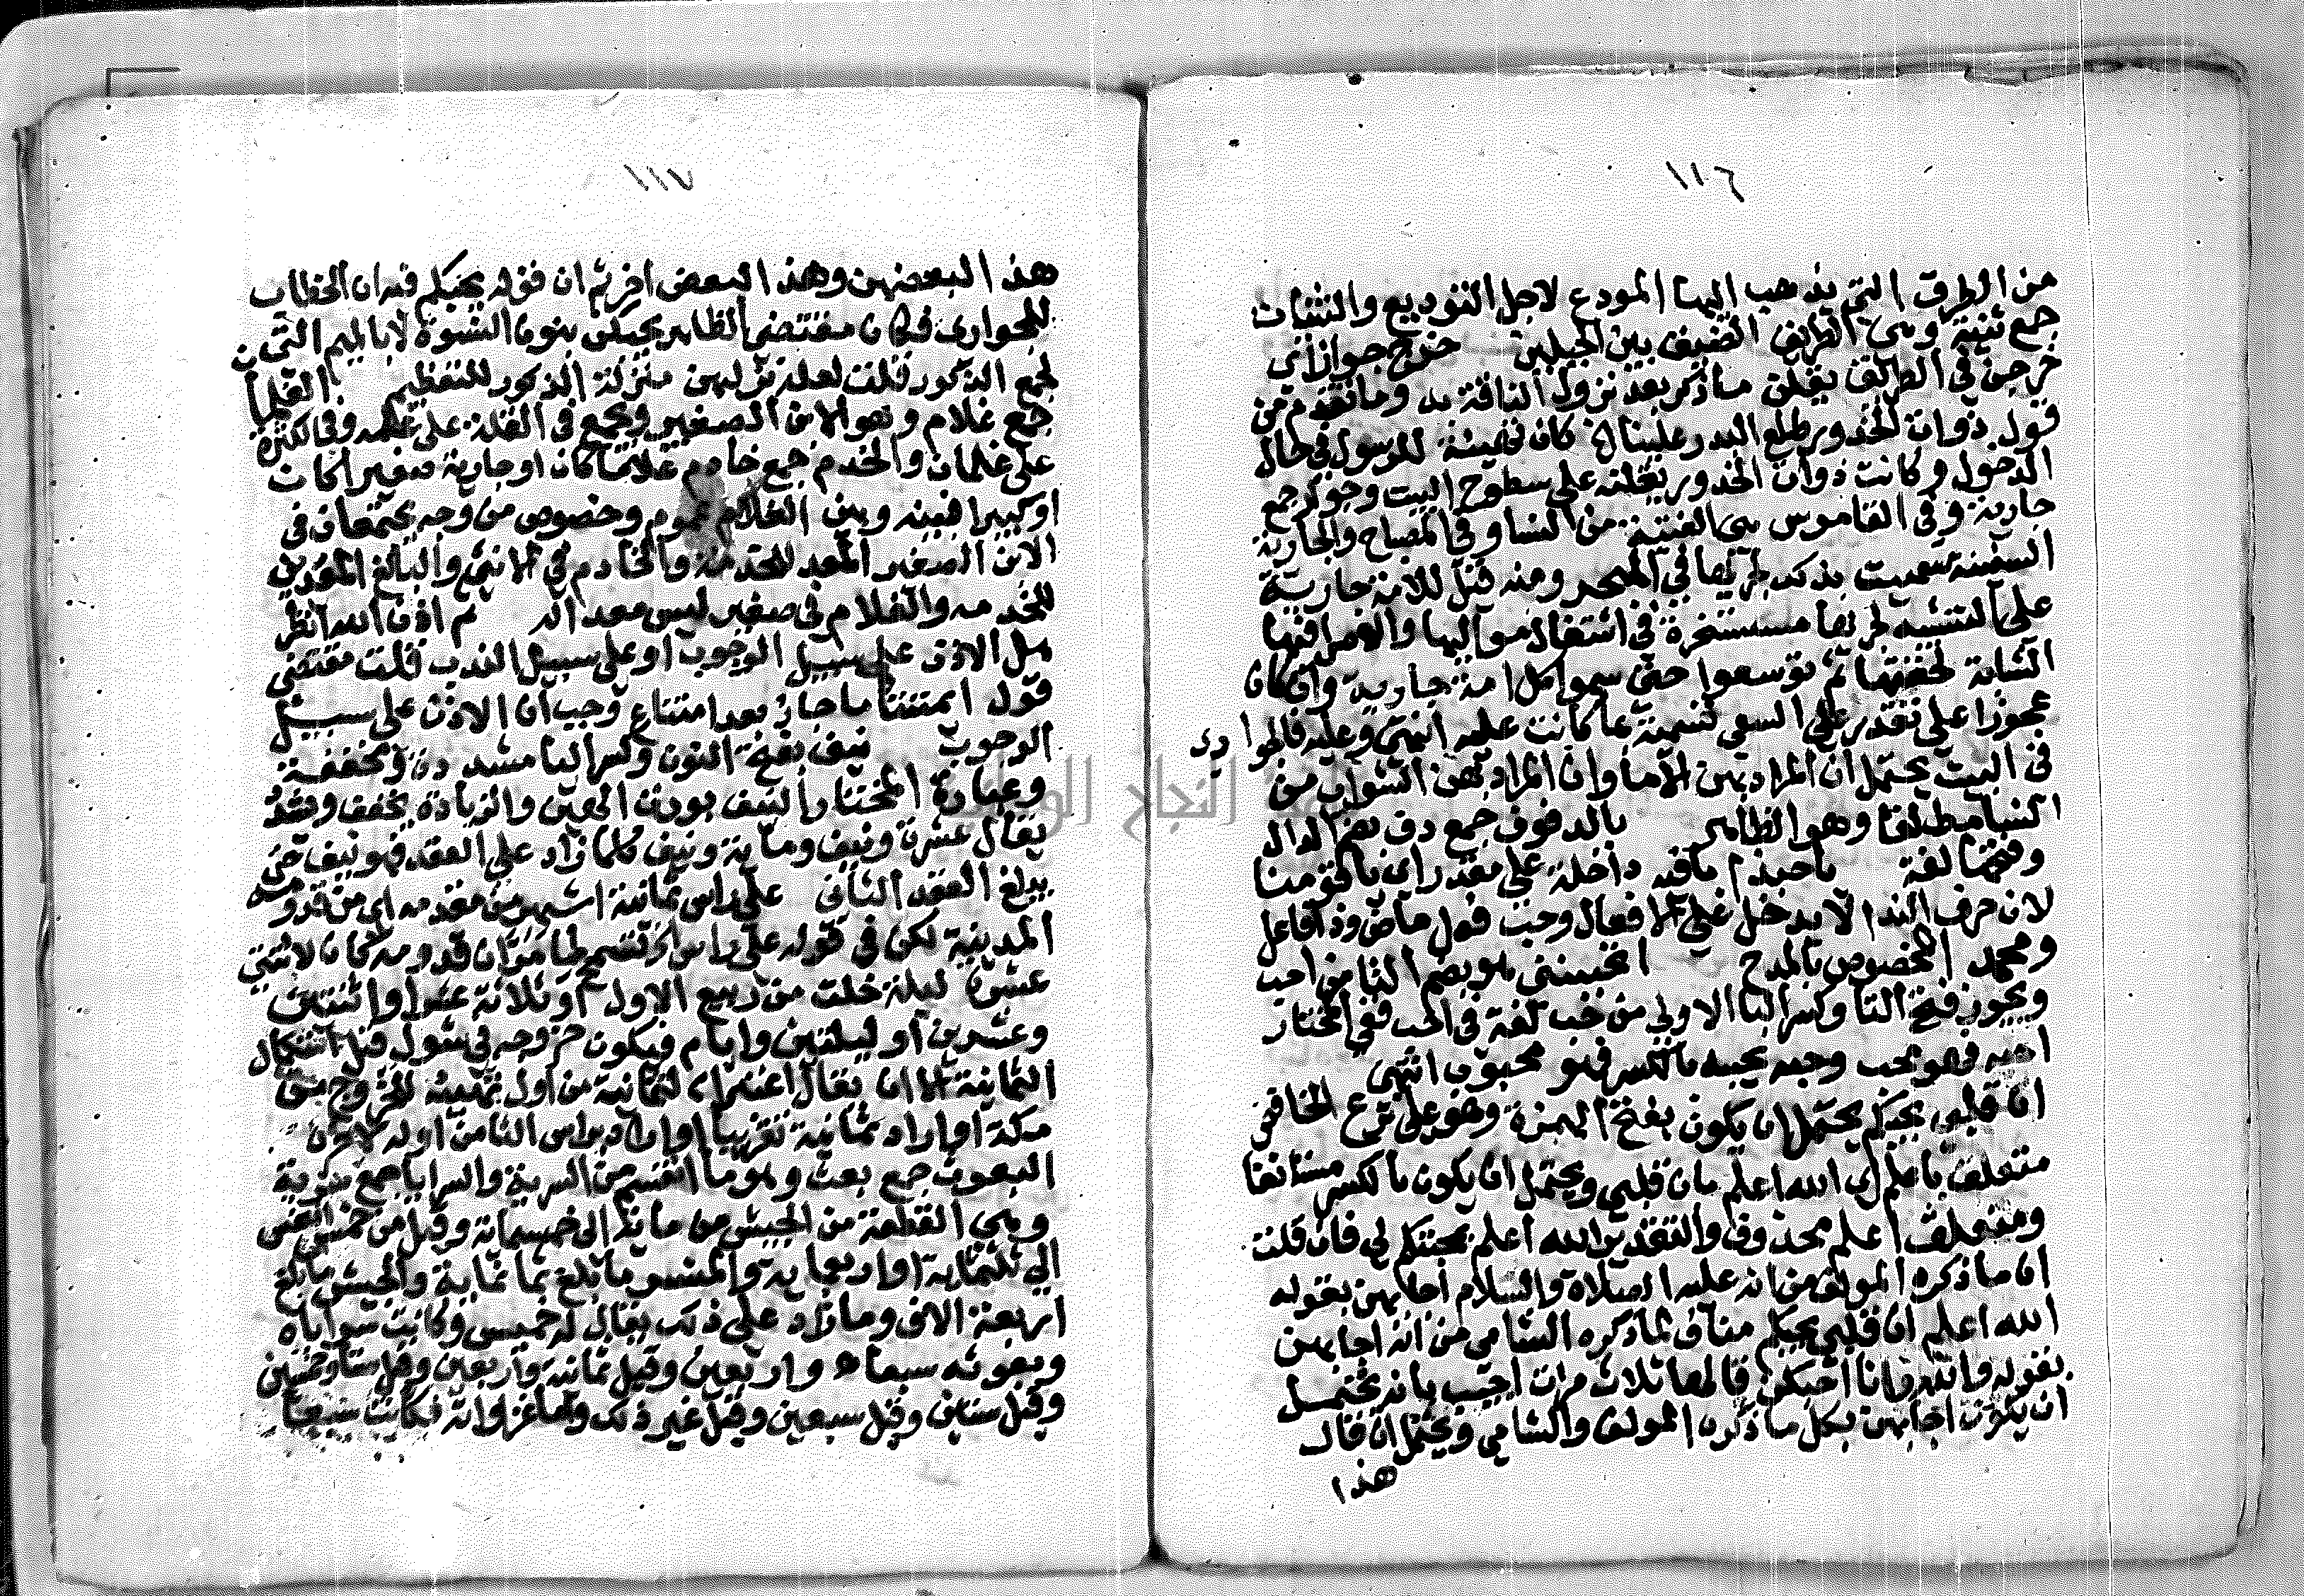 ١١٦
من الطرق التي يذهب اليها المودع لاجل التوديع والثنيات
جمع ثنية وهي الطريق الضيق بين الجبلين خرج جوار أي
خرجن في الطريق يقلن ما ذكر بعد نزول الناقة به وما تقدم من
قول ذوات الخدور طلع البدر علينا الخ كان تهنئة للرسول في حال
الدخول وكانت ذوات الخدور يقلنه على سطوح البيت وجوار جمع
جارية وفي القاموس هي الفتية من النسا وفي المصباح والجارية
السفينة سميت بذلك لجريها في البحر ومنه قيل للامة جارية
على التشبيه لجريها مستسخرة في اشتغال مواليها والاصل فيها
الشابة لخفتها ثم توسعوا حتى سموا كل امة جارية وان كان
عجوزا على تقدير على السعي تسمية بما كانت عليه انتهى وعليه فالجوارى
في البيت يحتمل ان المراد بهن الاما وان المراد بهن الشواب من
النسا مطلقا وهو الظاهر بالدفوف جمع دف بضم الدال
وفتحها لغة يا حبذا يا فيه داخلة على مقدر اي يا قومنا
لان حرف الندا لا يدخل على الافعال وحب فعل ماض وذا فاعل
ومحمد المخصوص بالمدح اتحببنني هو بضم التا من احب
ويجوز فتح التا وكسر البا الاولى من حب لغة في احب ففي المختار
احبه فهو محب وحبه يحبه بالكسر فهو محبوب انتهى
ان قلبي يحبكم يحتمل ان يكون بفتح الهمزة وهو على نزع الخافض
متعلق باعلم اي الله اعلم بان قلبي ويحتمل ان يكون بالكسر مستانفا
ومتعلق اعلم محذوف والتقدير الله اعلم بحبكم لي فان قلت
ان ما ذكره المولف من انه عليه الصلاة والسلام اجابهن بقوله
الله اعلم ان قلبي يحبكم مناف لما ذكره الشامي من انه اجابهن
بقوله والله وانا احبكن قالها ثلاث مرات اجيب بانه يحتمل
ان يكون اجابهن بكل ما ذكره المولف والشامي ويحتمل ان قال
هذا
١١٧
هذا لبعضهن وهذا لبعض اخر ثم ان قوله يحبكم فيه ان الخطاب
للجوارى فكان مقتضى الظاهر يحبكن بنون النسوة لا بالميم التي
لجمع الذكور قلت لعله نزلهن منزلة الذكور للتعظيم الغلمان
جمع غلام وهو الابن الصغير ويجمع في القلة على غلمه وفي الكثرة
على غلمان والخدم جمع خادم غلاما كان او جارية صغيرا كان
او كبيرا فبينه وبين الغلام عموم وخصوص من وجه يجتمعان في
الابن الصغير المعد للخدمة والخادم في الانثى والبالغ المعدين
للخدمه والغلام في صغير ليس معدا له ثم اذن الله انظر
هل الاذن على سبيل الوجوب او على سبيل الندب قلت مقتضى
قول ايمتنا ما جاز بعد امتناع وجب ان الاذن على سبيل
الوجوب نيف بفتح النون وكسر اليا مشددة ومخففة
وعبارة المختار النيف بوزن الهين والزيادة يخفف ويشدد
يقال عشرة ونيف وماية ونيف فكلما زاد على العقد فهو نيف حتى
يبلغ العقد الثاني على راس ثمانية اشهر من مقدمه اي من قدومه
المدينة لكن في قوله على راس الخ تسمح لما مر ان قدومه كان لاثنتي
عشرة ليلة خلت من ربيع الاول او ثلاثة عشر او اثنين
وعشرين او ليلتين وايام فيكون خروجه في شوال قبل استكمال
الثمانية الا ان يقال اعتبر الثمانية من اول تهيئه للخروج من
مكة او اراد بثمانية تقريبا او اراد براس الثامن اوله لاخره
البعوث جمع بعث وهو ما انقسم من السرية والسرايا جمع سرية
وهي القطعة من الجيش من ماية الى خمسماية وقيل من خمس انفس
الى ثلثماية او اربعماية والمنسر ما بلغ ثمانماية والجيش ما بلغ
اربعة الاف وما زاد على ذلك يقال له خميس وكانت سراياه
وبعوثه سبعا واربعين وقيل ثمانية واربعين وقيل ستا وخمسين
وقيل ستين وقيل سبعين وقيل غير ذلك واما غزواته فكانت سبعا